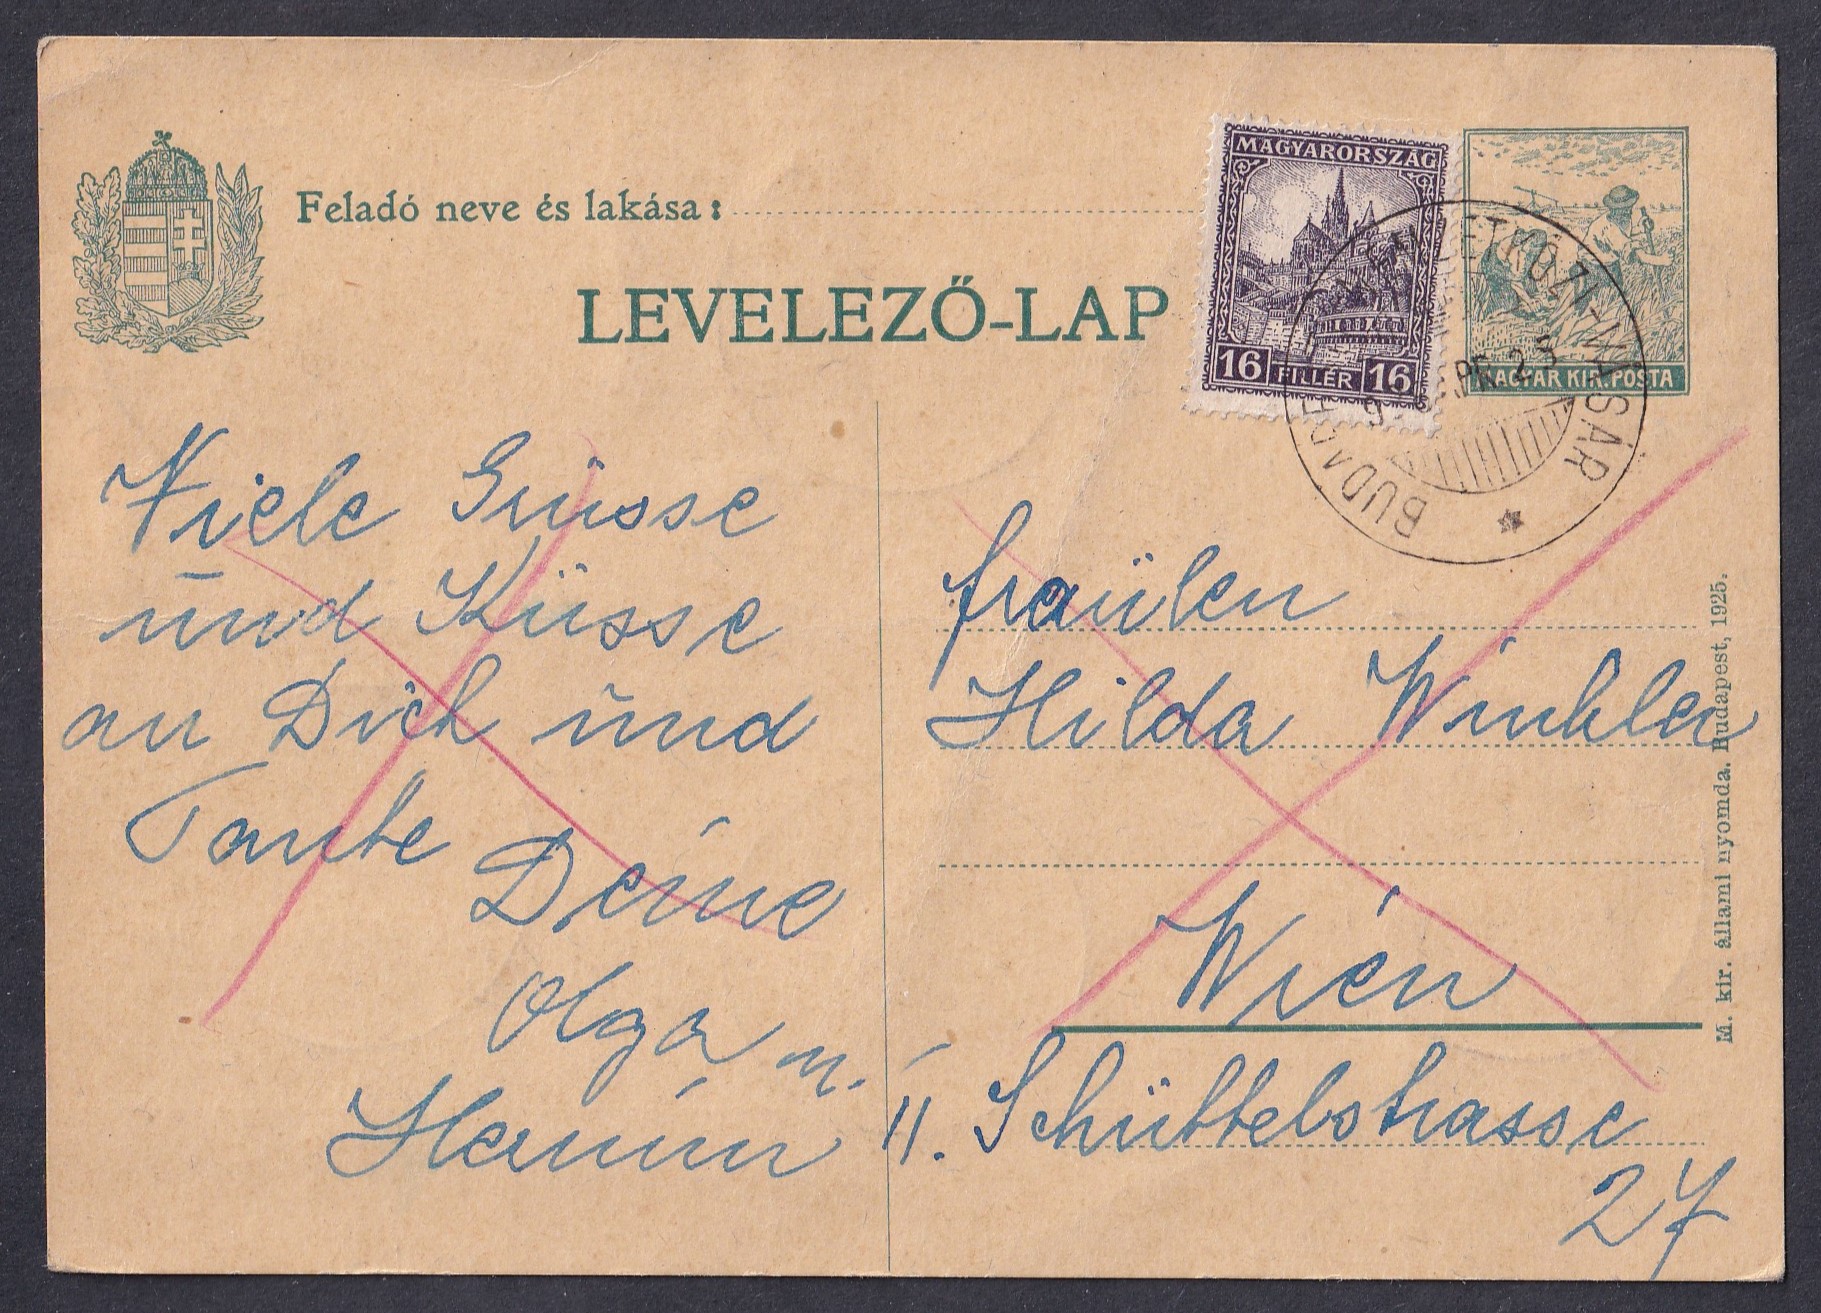 Feladó neve és lakása:
LEVELEZŐ-LAP
MAGYARORSZÁG
16 FILLÉR 16
MAGYAR KIR. POSTA
BUDAPEST NEMZETKÖZI-VÁSÁR
APR 25
Viele Grüsse
und Küsse
an Dich und
Tante
Deine
Olga
Fraülen
Hilda Winkler
Wien
II. Schüttelstrasse
27
M. kir. állami nyomda. Budapest, 1925.